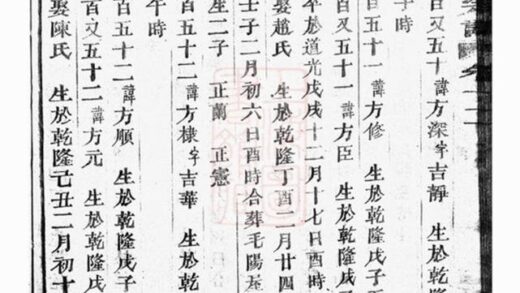 百又五十 諱方深字吉靜 生於乾隆
午時
百又五十一 諱方修 生於乾隆戊子
百又五十一 諱方臣 生於乾隆戊
卒於道光戊戌十二月十七日酉時
娶趙氏 生於乾隆丁酉二月廿四
壬子二月初六日酉時合葬毛陽
生二子 正蘭 正憲
百又五十二 諱方棣字吉華 生於乾
午時
百又五十二 諱方順 生於乾隆戊子
百又五十二 諱方元 生於乾隆戊
娶陳氏 生於乾隆己丑二月初十